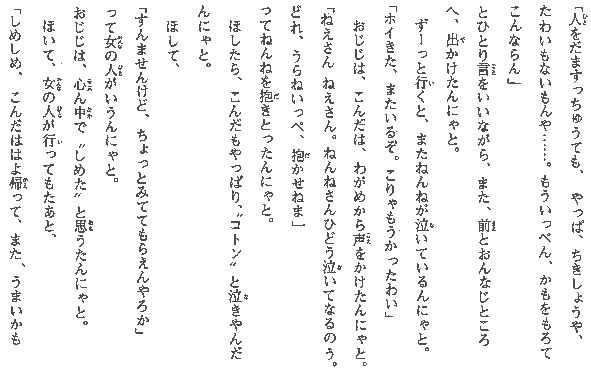 「人をだますっちゅうても、やっぱ、ちきしょうや、
たわいもないもんや……。もういっぺん、かもをもろて
こんならん」
とひとり言をいいながら、また、前とおんなじところ
へ、出かけたんにゃと。
ずーっと行くと、またねんねが泣いているんにゃと。
「ホイきた、またいるぞ。こりゃもうかったわい」
おじじは、こんだは、わがめから声をかけたんにゃと。
「ねえさん ねえさん。ねんねさんひどう泣いてなるのう。
どれ、うらねいっぺ、抱かせねま」
ってねんねを抱きとったんにゃと。
ほしたら、こんだもやっぱり、〝コトン〟と泣きやんだ
んにゃと。
ほして、
「すんませんけど、ちょっとみててもらえんやろか」
って女の人がいうんにゃと。
おじじは、心ん中で〝しめた〟と思うたんにゃと。
ほいて、女の人が行ってもたあと、
「しめしめ、こんだははよ帰って、また、うまいかも